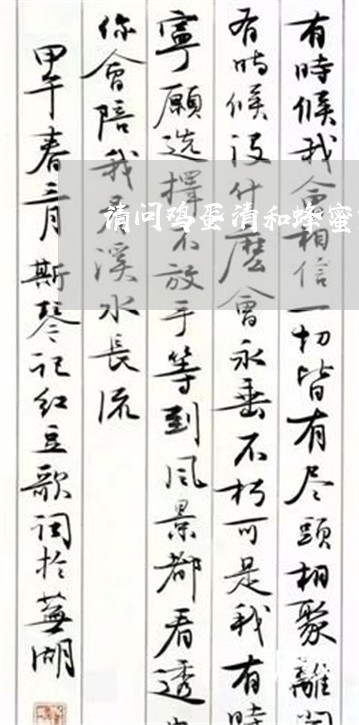 有時候我會相信一切皆有尽頭相聚離
有時候没什麽會永垂不朽可是我有時
寧願选擇不放手等到風景都看透
你會陪我看溪水長流
甲午春三月斯琴记红豆歌词於蕪湖
请问鸡蛋清和蜂蜜